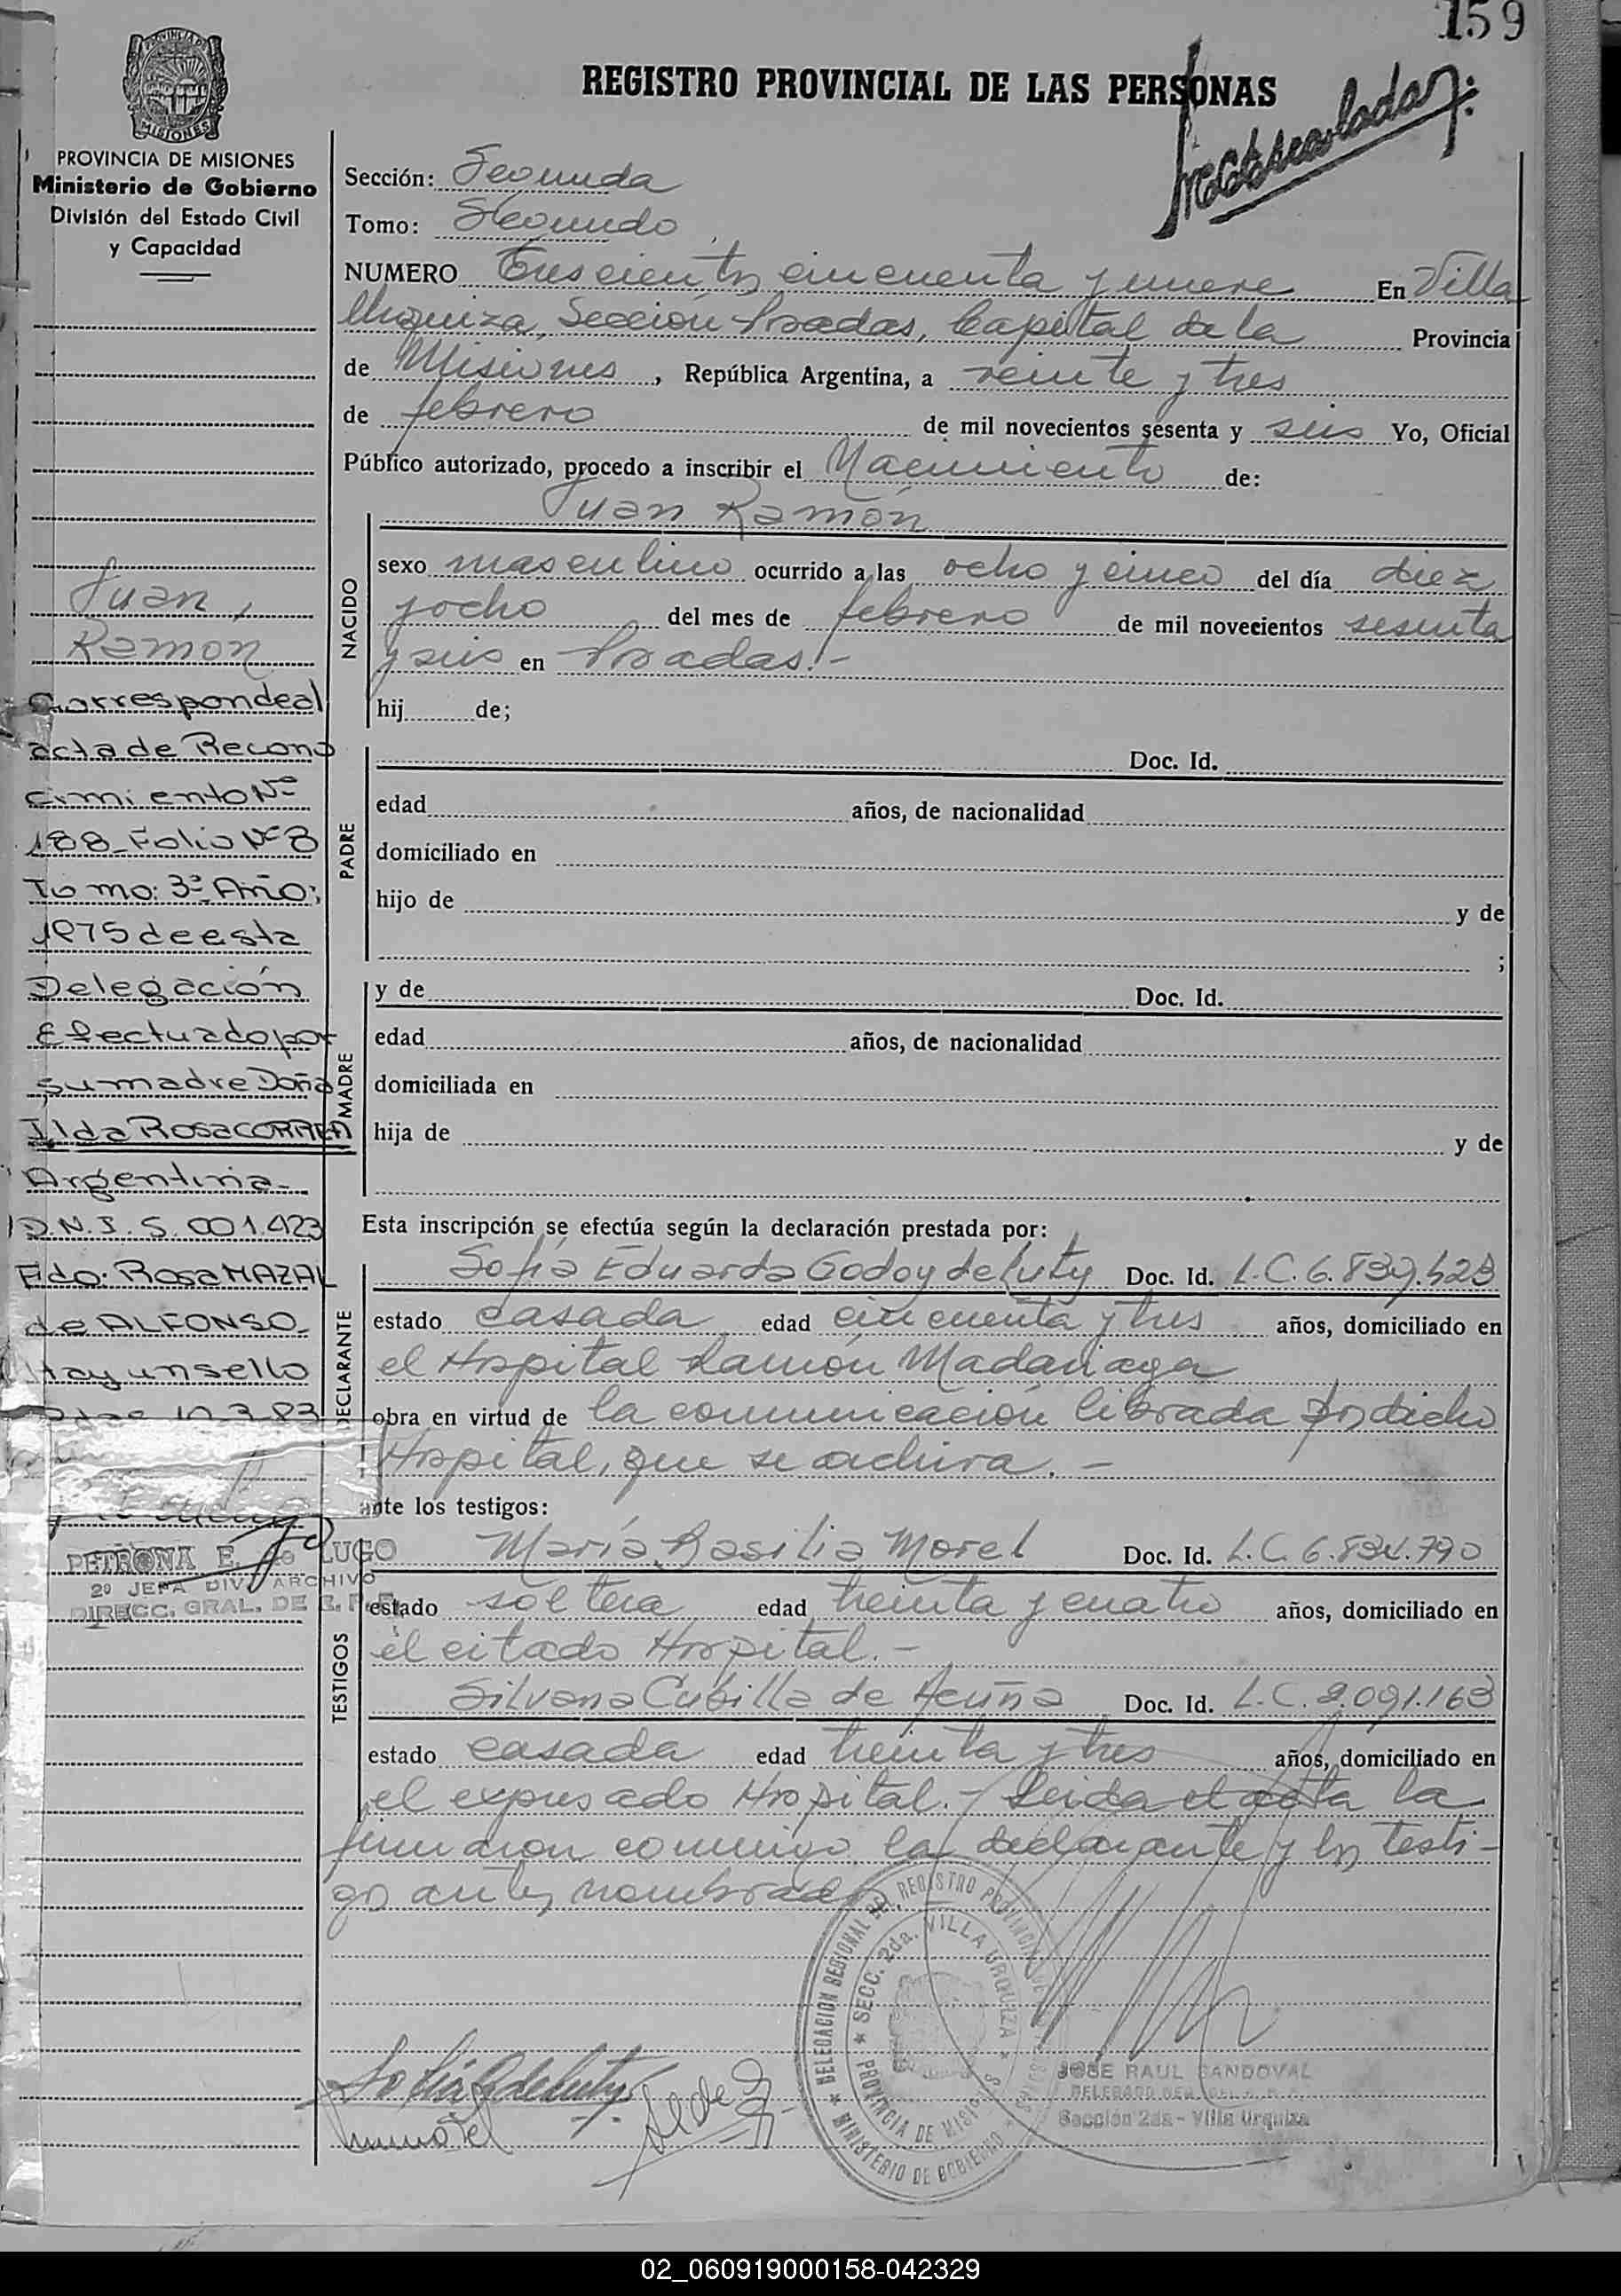 159
REGISTRO PROVINCIAL DE LAS PERSONAS
PROVINCIA DE MISIONES
MISIONES
PROVINCIA DE MISIONES
Ministerio de Gobierno
División del Estado Civil
y Capacidad
Sección: Segunda
Tomo: Segundo
NUMERO Trescientos cincuenta y nueve En Villa
Urquiza, Sección Posadas, Capital de la Provincia
de Misiones, República Argentina, a veinte y tres
de febrero de mil novecientos sesenta y seis Yo, Oficial
Público autorizado, procedo a inscribir el Nacimiento de:
Juan Ramón
NACIDO
sexo masculino ocurrido a las ocho y cinco del día diez
y ocho del mes de febrero de mil novecientos sesenta
y seis en Posadas.-
hij de;
Juan
Ramón
Corresponde al
acta de Recono
cimiento Nº
188 Folio Nº 8
Tomo: 3º Año:
1975 de esta
Delegación
Efectuado por
su madre Doña
Ilda Rosa CORREA
Argentina-
D.N.I. 5.001.423
Fdo: Rosa MAZAL
de ALFONSO
Hay un sello
10.3.83
PETRONA E. de LUGO
2º JEFA DIV. ARCHIVO
DIRECC. GRAL. DE R. P. P.
PADRE
Doc. Id.
edad años, de nacionalidad
domiciliado en
hijo de y de
;
MADRE
y de Doc. Id.
edad años, de nacionalidad
domiciliada en
hija de y de
Esta inscripción se efectúa según la declaración prestada por:
DECLARANTE
Sofía Eduarda Godoy de Luty Doc. Id. L.C. 6.839.523
estado casada edad cincuenta y tres años, domiciliado en
el Hospital Ramón Madariaga
obra en virtud de la comunicación librada por dicho
Hospital, que se archiva.-
ante los testigos:
TESTIGOS
María Basilia Morel Doc. Id. L.C. 6.834.790
estado soltera edad treinta y cuatro años, domiciliado en
el citado Hospital.-
Silvana Cubilla de Acuña Doc. Id. L.C. 2.091.163
estado casada edad treinta y tres años, domiciliado en
el expresado Hospital.- Leida el acta la
firmaron conmigo la declarante y los testi-
gos antes nombrados
DELEGACION REGIONAL DEL REGISTRO PROVINCIAL DE LAS PERSONAS
SECC. 2da. VILLA URQUIZA
PROVINCIA DE MISIONES
MINISTERIO DE GOBIERNO
JOSE RAUL SANDOVAL
Sección 2da - Villa Urquiza
02_060919000158-042329